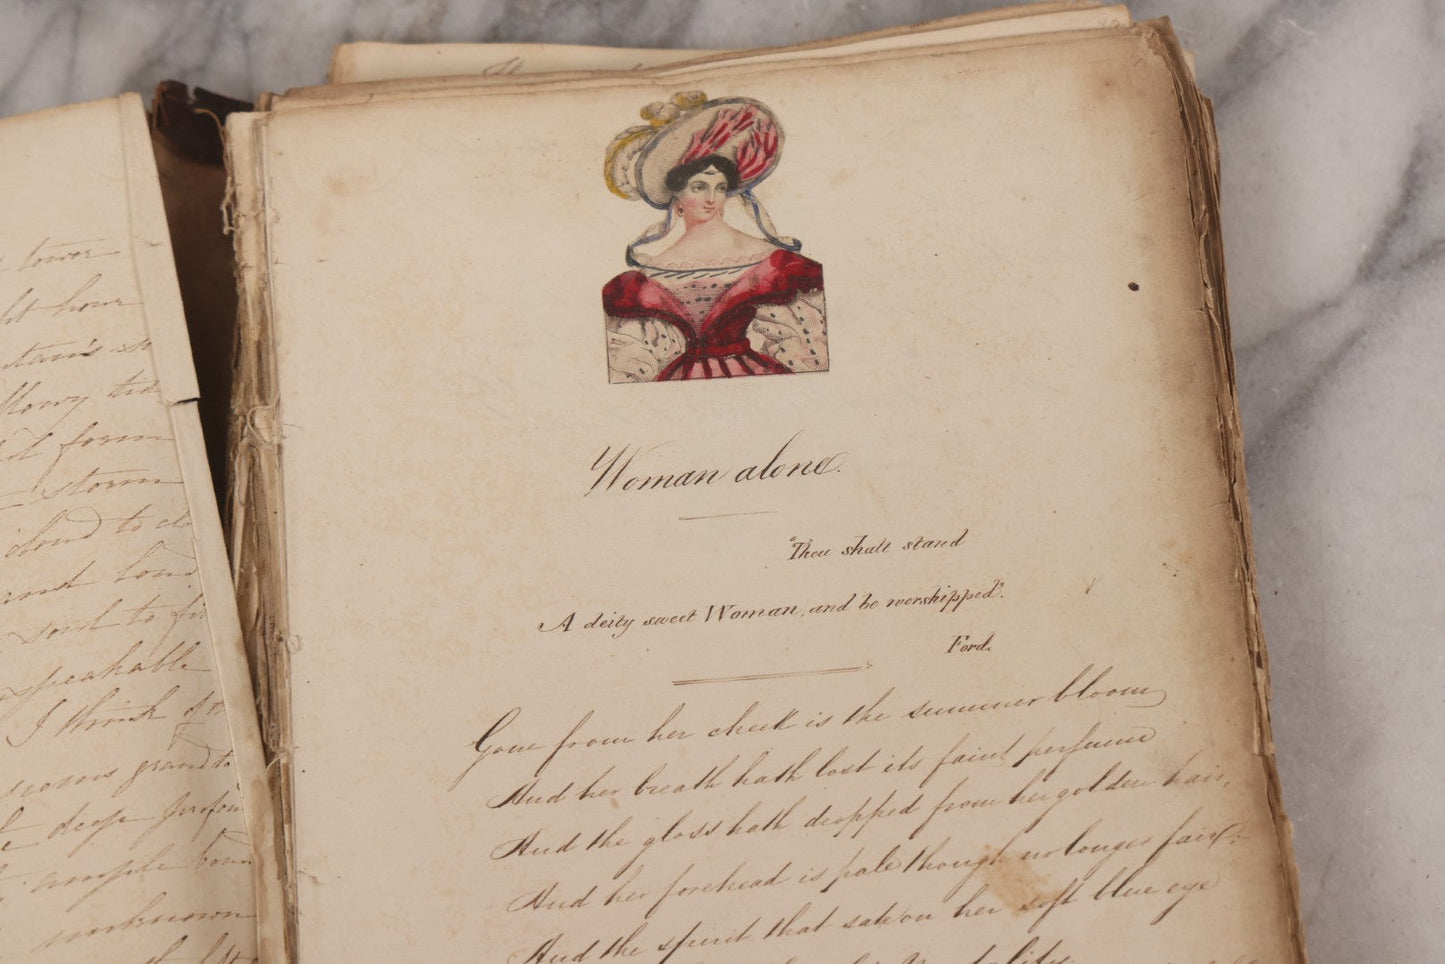 tower
ht hour
stain's
flowy tid
st form
storm
cloud to clo
and loud
sout to fi
speakable
I think of th
grand to
deep profou
ample boun
unknown
Woman alone.
"Thou shalt stand
A deity sweet Woman, and be worshipped".
Ford.
Gone from her cheek is the summer bloom
And her breath hath lost its faint perfume
And the gloss hath dropped from her golden hair,
And her forehead is pale though no longer fair;
And the spirit that sate on her soft blue eye